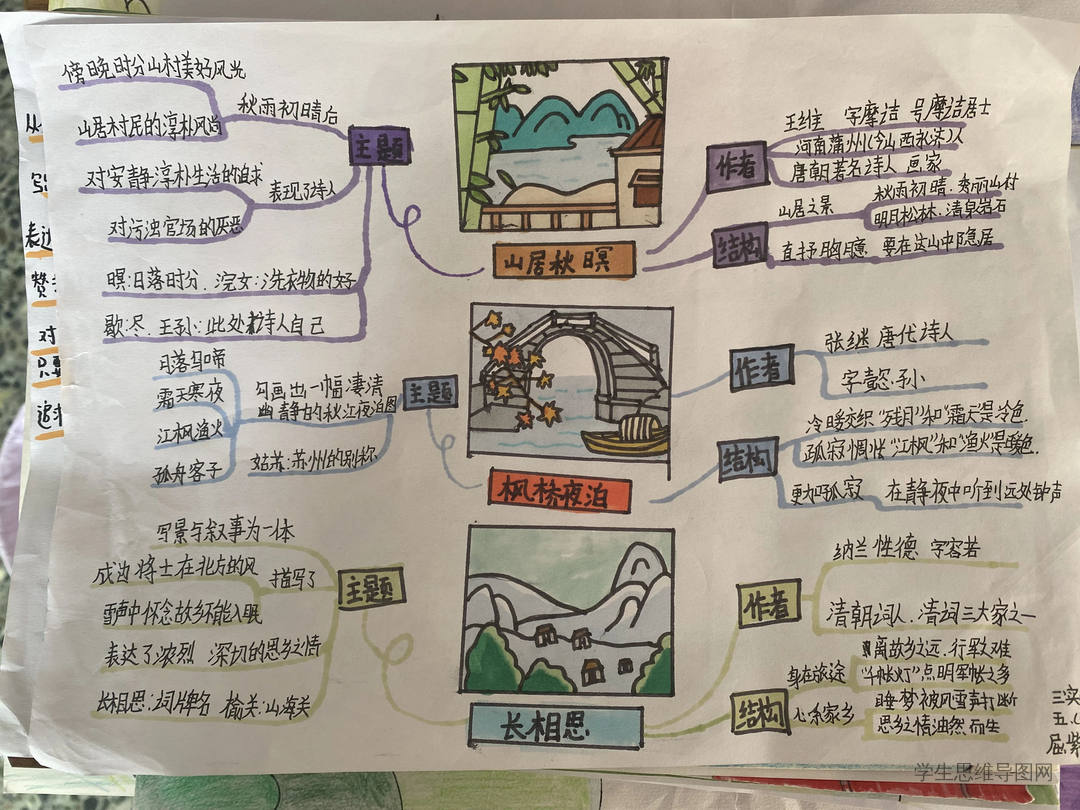 傍晚时分山村美好风光
山居村民的淳朴风尚
秋雨初晴后
主题
对安静淳朴生活的追求
表现了诗人
对污浊官场的厌恶
暝:日落时分、浣女:洗衣物的女子
歇:尽、王孙:此处指诗人自己
山居秋暝
作者
王维 字摩诘 号摩诘居士
河南蒲州(今山西永济)人
唐朝著名诗人 画家
结构
山居之景
秋雨初晴、秀丽山村
明月松林、清泉岩石
直抒胸臆 要在这山中隐居
日落乌啼
霜天寒夜
江枫渔火
孤舟客子
勾画出一幅凄清
幽静的秋江夜泊图
主题
姑苏:苏州的别称
枫桥夜泊
作者
张继 唐代诗人
字懿孙
结构
冷暖交织 "残月"和"霜天"是冷色.
孤寂惆怅 "江枫"和"渔火"是暖色.
更加孤寂 在静夜中听到远处钟声
写景与叙事为一体
主题
戍边将士在北方的风
描写了
雪声中怀念故乡不能入眠
表达了浓烈 深切的思乡之情
长相思:词牌名 榆关:山海关
长相思
作者
纳兰性德 字容若
清朝词人、清词三大家之一
结构
身在旅途
离故乡之远、行军之难
"千帐灯"点明军帐之多
心系家乡
睡梦被风雪声打断
思乡之情油然而生
三实
五.
屈紫
从
写
表达
赞
对
只要
追求
学生思维导图网